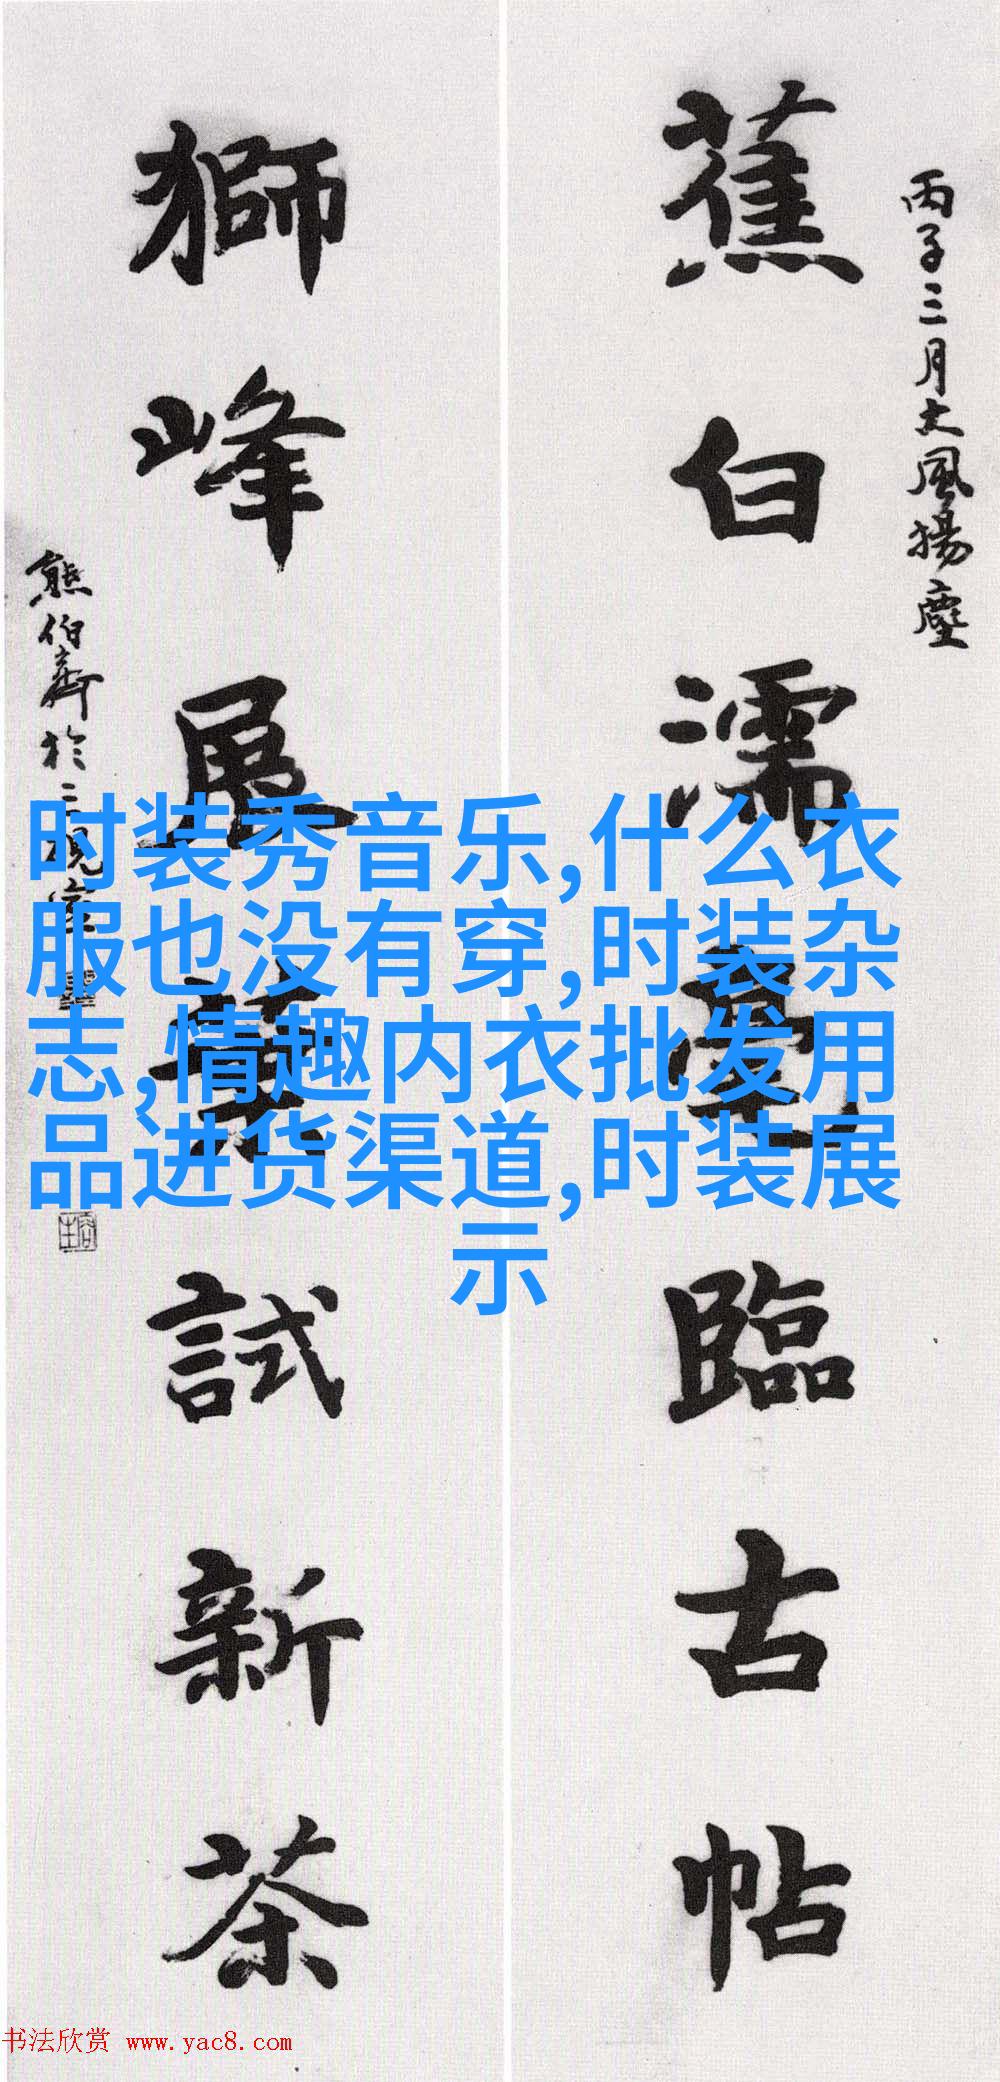 丙子三月大風揚塵
蕉白濡毫臨古帖
獅峰展葉試新茶
熊伯齊於二硯室
时装秀音乐,什么衣
服也没有穿,时装杂
志,情趣内衣批发用
品进货渠道,时装展
示
书法欣赏 www.yac8.com